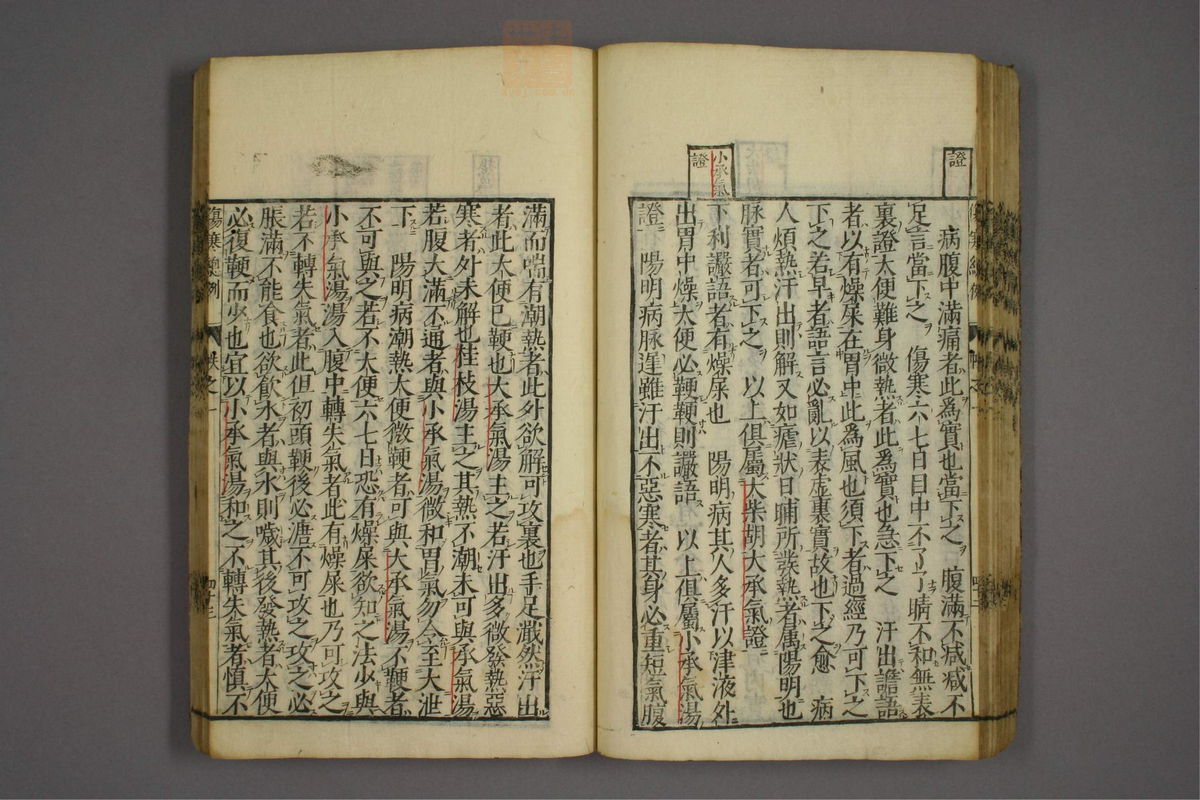 證
病腹中滿痛者此爲實也當下之　腹滿不減減不
足言當下之　傷寒六七日目中不了了睛不和無表
裏證大便難身微熱者此爲實也急下之　汗出譫語
者以有燥屎在胃中此爲風也須下者過經乃可下之
下之若早者語言必亂以表虛裏實故也下之愈　病
人煩熱汗出則解又如瘧狀日晡所發熱者屬陽明也
脉實者可下之　以上俱屬大柴胡大承氣證
小承氣
證
下利讝語者有燥屎也　陽明病其人多汗以津液外
出胃中燥大便必鞕鞕則讝語　以上俱屬小承氣湯
證　陽明病脉遲雖汗出不惡寒者其身必重短氣腹
滿而喘有潮熱者此外欲解可攻裏也手足濈然汗出
者此大便已鞕也大承氣湯主之若汗出多微發熱惡
寒者外未解也桂枝湯主之其熱不潮未可與承氣湯
若腹大滿不通者與小承氣湯微和胃氣勿令至大泄
下　陽明病潮熱大便微鞕者可與大承氣湯不鞕者
不可與之若不大便六七日恐有燥屎欲知之法少與
小承氣湯湯入腹中轉失氣者此有燥屎也乃可攻之
若不轉失氣者此但初頭鞕後必溏不可攻之攻之必
脹滿不能食也欲飲水者與水則噦其後發熱者大便
必復鞕而少也宜以小承氣湯和之不轉失氣者慎不
傷寒總例　卷之一　四十三